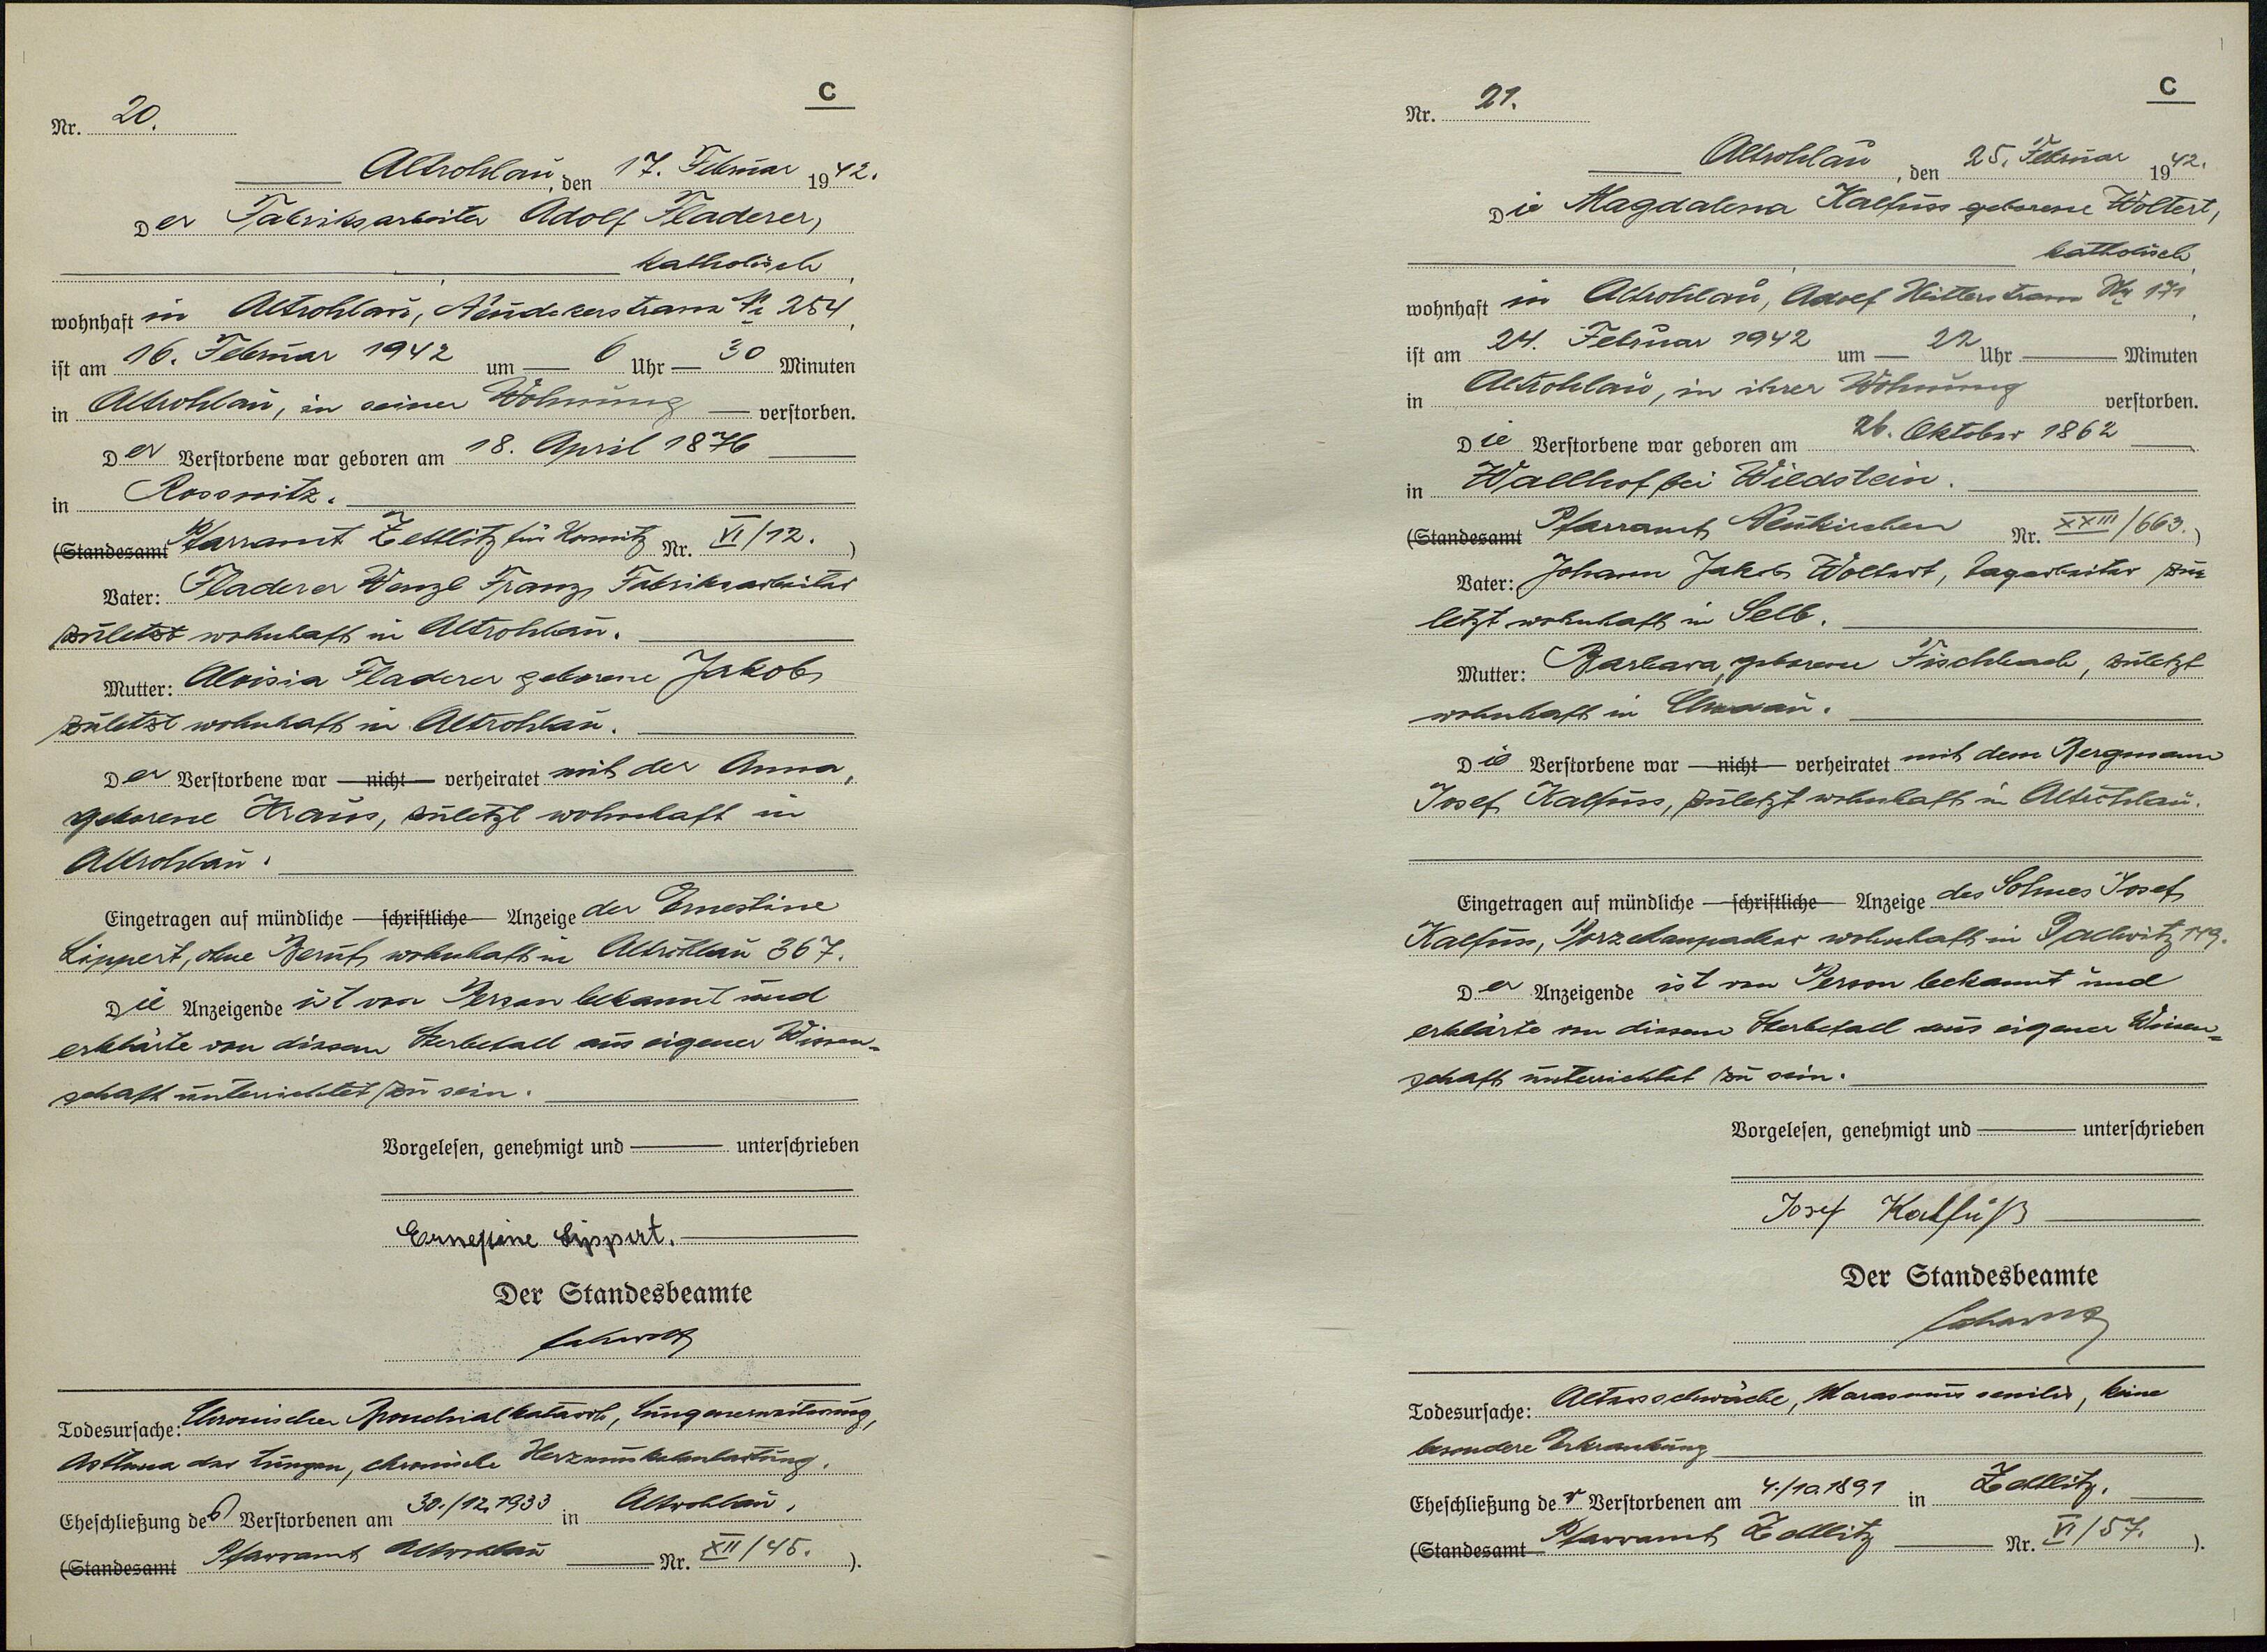 C
Nr. 20.
Altrohlau, den 17. Februar 1942.
Der Fabriksarbeiter Adolf Fladerer,
katholisch,
wohnhaft in Altrohlau, Neudekerstrasse Nr 254,
ist am 16. Februar 1942 um 6 Uhr 30 Minuten
in Altrohlau, in seiner Wohnung verstorben.
Der Verstorbene war geboren am 18. April 1876
in Rossnitz.
(Standesamt Pfarramt Zettlitz für Nr. VI/12.)
Vater: Fladerer Wenzl Franz, Fabriksarbeiter
zuletzt wohnhaft in Altrohlau.
Mutter: Aloisia Fladerer geborene Jakob,
zuletzt wohnhaft in Altrohlau.
Der Verstorbene war nicht verheiratet mit der Anna,
geborene Kraus, zuletzt wohnhaft in
Altrohlau.
Eingetragen auf mündliche schriftliche Anzeige der Ernestine
Lippert, ohne Beruf, wohnhaft in Altrohlau 367.
Die Anzeigende ist von Person bekannt und
erklärte von diesem Sterbefall aus eigener Wissen-
schaft unterrichtet zu sein.
Vorgelesen, genehmigt und unterschrieben
Ernestine Lippert.
Der Standesbeamte
Todesursache: Chronischer Bronchialkatarrh, Lungenerweiterung,
Asthma der Lungen, chronische Herzmuskelentartung.
Eheschließung des Verstorbenen am 30./12.1933 in Altrohlau.
(Standesamt Pfarramt Altrohlau Nr. XII/45.).
C
Nr. 21.
Altrohlau, den 25. Februar 1942.
Die Magdalena Kalfuss geborene Woltert,
katholisch,
wohnhaft in Altrohlau, Adolf Hitlerstrasse Nr 171,
ist am 24. Februar 1942 um 22 Uhr Minuten
in Altrohlau, in ihrer Wohnung verstorben.
Die Verstorbene war geboren am 26. Oktober 1862
in Wallhof bei Wildstein.
(Standesamt Pfarramt Neukirchen Nr. XXIII/663.)
Vater: Johann Jakob Woltert, Tagarbeiter zu-
letzt wohnhaft in Selb.
Mutter: Barbara, geborene Fischbach, zuletzt
wohnhaft in
Die Verstorbene war nicht verheiratet mit dem Bergmann
Josef Kalfuss, zuletzt wohnhaft in Altrohlau.
Eingetragen auf mündliche schriftliche Anzeige des Sohnes Josef
Kalfuss, Porzellanpacker wohnhaft in 
Der Anzeigende ist von Person bekannt und
erklärte von diesem Sterbefall aus eigener Wissen-
schaft unterrichtet zu sein.
Vorgelesen, genehmigt und unterschrieben
Josef Kalfuß
Der Standesbeamte
Todesursache: Altersschwäche, Marasmus senilis, keine
besondere Erkrankung
Eheschließung der Verstorbenen am 4./10.1891 in Zettlitz.
(Standesamt Pfarramt Zettlitz Nr. VI/57.).